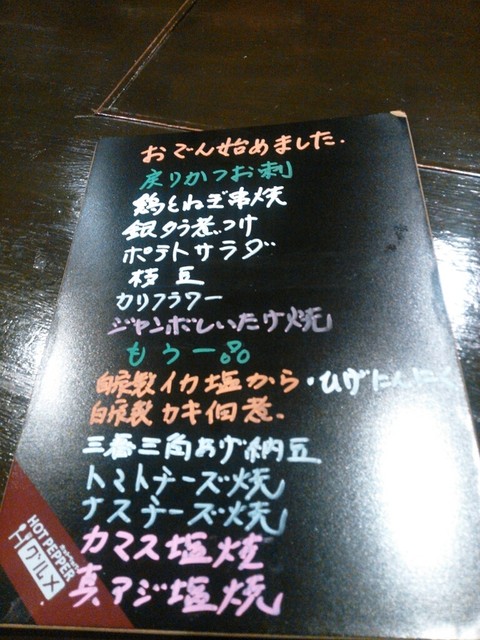 おでん始めました.
戻りかつお刺
鶏とねぎ串焼
銀ダラ煮つけ
ポテトサラダ
枝豆
カリフラワー
ジャンボしいたけ焼
もう一品
自家製イカ塩から・ひげにんにく
自家製カキ佃煮。
三番三角あげ納豆
トマトチーズ焼
ナスチーズ焼
カマス塩焼
真アジ塩焼
HOT PEPPER
グルメ